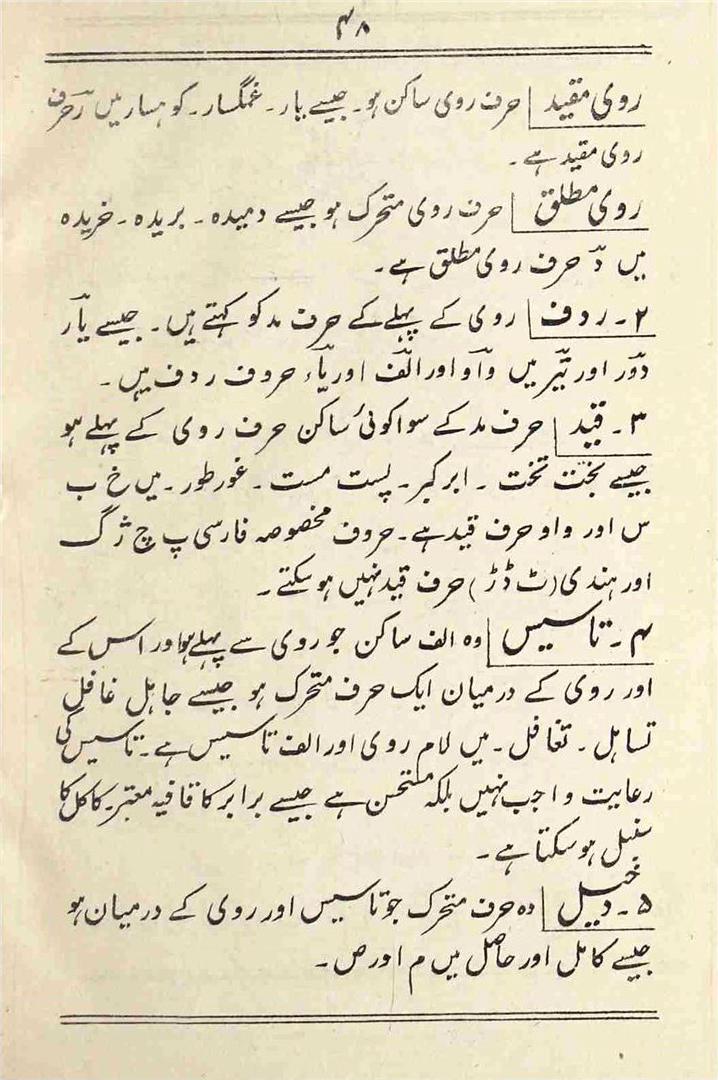 ۴۸
روی مقید | حرف روی ساکن ہو۔ جیسے یار۔ غمگسار۔ کوہسار میں رَ حرف
روی مقید ہے۔
روی مطلق | حرف روی متحرک ہو جیسے دمیدہ۔ بریدہ۔ خریدہ
میں دَ حرف روی مطلق ہے۔
۲۔ ردف | روی کے پہلے کے حرف مد کو کہتے ہیں۔ جیسے یار
دور اور تیر میں واو اور الف اور یاء حروف ردف ہیں۔
۳۔ قید | حرف مد کے سوا کوئی ساکن حرف روی کے پہلے ہو
جیسے بخت تخت ۔ ابر کبر۔ پست مست ۔ غور طور۔ میں خ ب
س اور واو حرف قید ہے۔ حروف مخصوصہ فارسی پ چ ژ گ
اور ہندی (ٹ ڈ ڑ) حرف قید نہیں ہو سکتے۔
۴۔ تاسیس | وہ الف ساکن جو روی سے پہلے ہو اور اس کے
اور روی کے درمیان ایک حرف متحرک ہو جیسے جاہل غافل
تساہل۔ تغافل۔ میں لام روی اور الف تاسیس ہے۔ تاسیس کی
رعایت واجب نہیں بلکہ مستحسن ہے جیسے برابر کا قافیہ معتبر۔ کاکل کا
سنبل ہو سکتا ہے۔
۵۔ دخیل | وہ حرف متحرک جو تاسیس اور روی کے درمیان ہو
جیسے کامل اور حاصل میں م اور ص۔